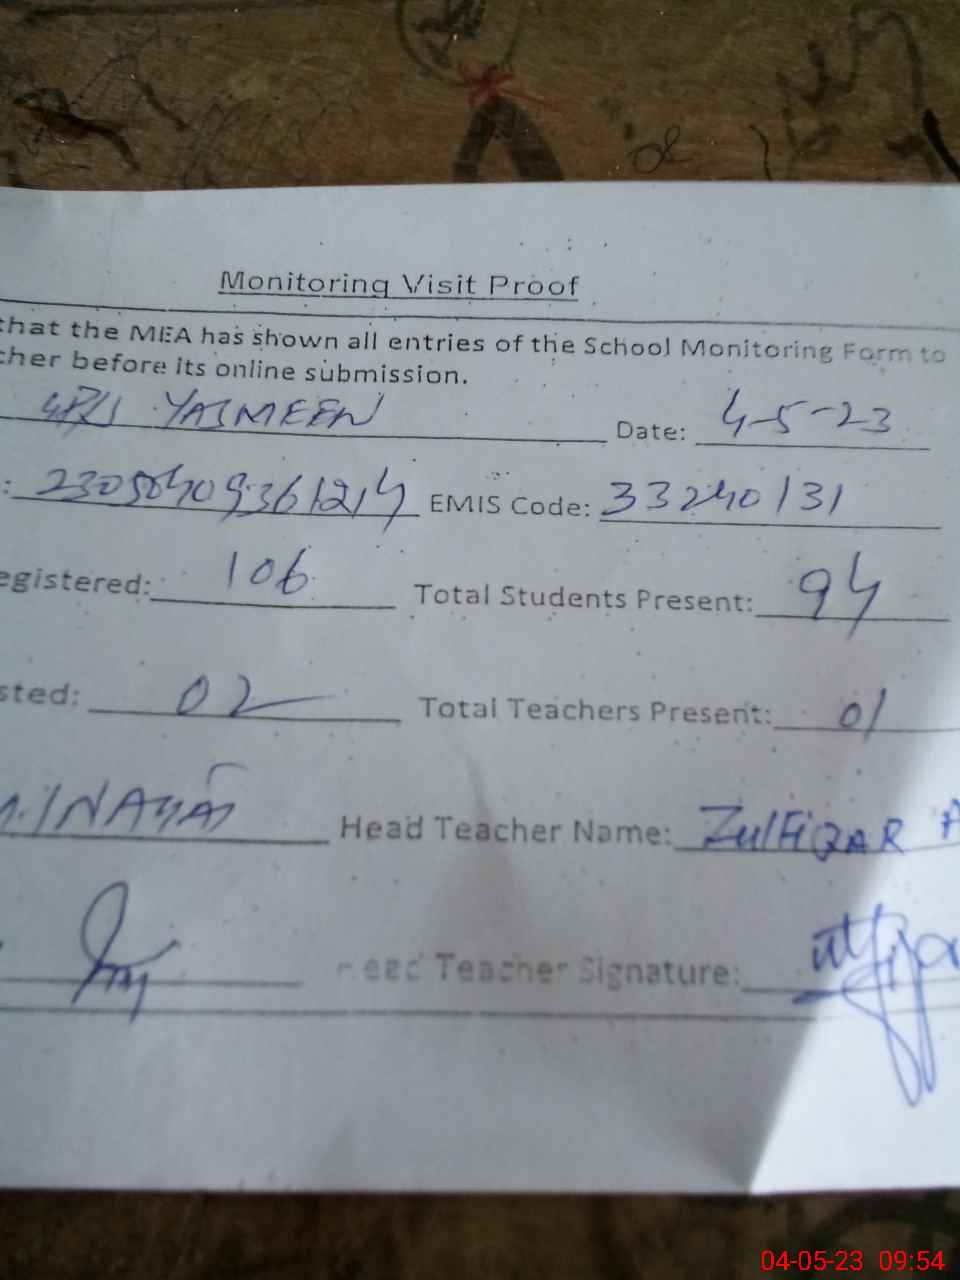 Monitoring Visit Proof
that the MEA has shown all entries of the School Monitoring Form to
cher before its online submission.
YASMEEN Date: 4-5-23
: EMIS Code: 33240131
egistered: 106 Total Students Present: 94
sted: 02 Total Teachers Present: 01
INAYAT Head Teacher Name: ZulFiQAR A
Head Teacher Signature:
04-05-23 09:54